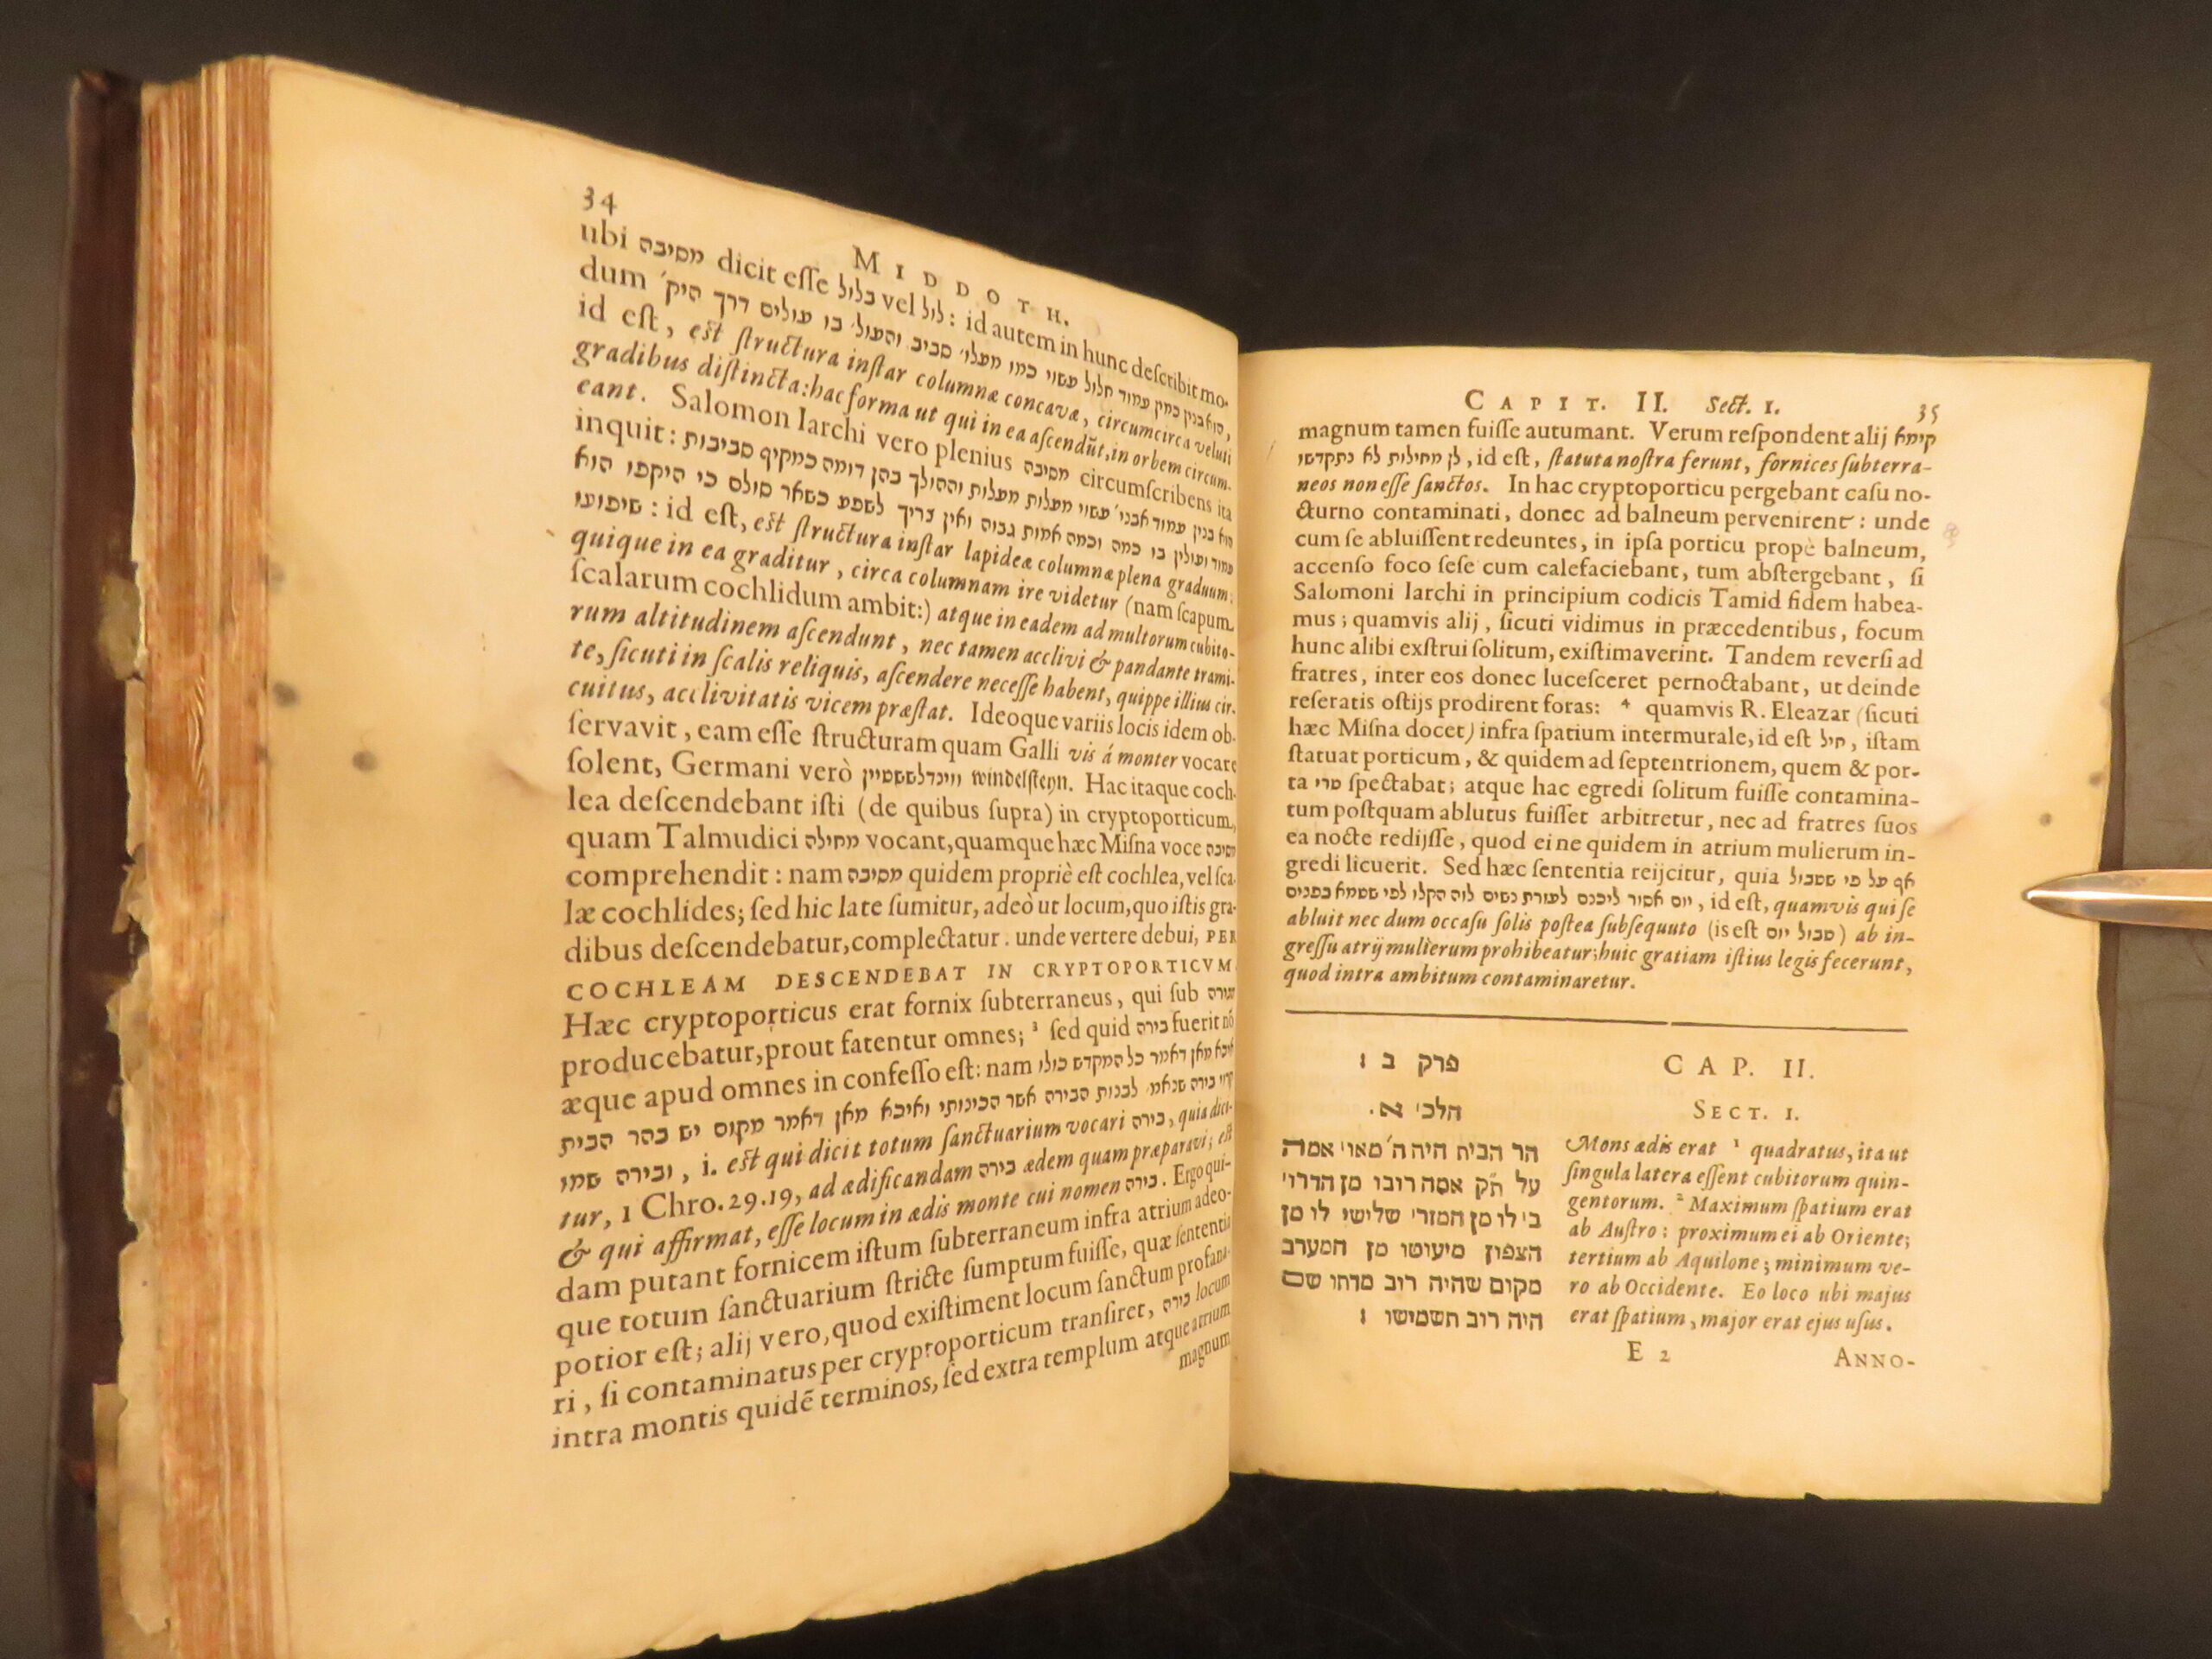 34
MIDDOTH.
ubi מסיבה dicit eſſe כלול vel לול : id autem in hunc deſcribit mo-
dum הוא בנין כמין עמוד חלול עשוי כמו מעלו׳ סביב והעול׳ בו עולים דרך היק׳ ,
id eſt, eſt ſtructura inſtar columnæ concavæ, circumcirca veluti
gradibus diſtincta: hac forma ut qui in ea aſcendũt, in orbem circum-
eant. Salomon Iarchi vero plenius מסיבה circumſcribens ita
inquit: הוא בנין עמוד אבני׳ עשוי מעלות מעלות וההולך בהן דומה כמקיף סביבות
עמוד ועולין בו כמה וכמה אמות גבוה ואין צריך לשפע כשאר סולם כי היקפו הוא
שיפועו : id eſt, eſt ſtructura inſtar lapideæ columnæ plena graduum;
quique in ea graditur, circa columnam ire videtur (nam ſcapum
ſcalarum cochlidum ambit:) atque in eadem ad multorum cubito-
rum altitudinem aſcendunt, nec tamen acclivi & pandante trami-
te, ſicuti in ſcalis reliquis, aſcendere neceſſe habent, quippe illius cir-
cuitus, acclivitatis vicem præſtat. Ideoque variis locis idem ob-
ſervavit, eam eſſe ſtructuram quam Galli vis á monter vocare
ſolent, Germani verò ווינדלשטיין windelſteyn. Hac itaque coch-
lea deſcendebant iſti (de quibus ſupra) in cryptoporticum,
quam Talmudici מחילה vocant, quamque hæc Miſna voce מסיבה
comprehendit: nam מסיבה quidem propriè eſt cochlea, vel ſca-
læ cochlides; ſed hic late ſumitur, adeò ut locum, quo iſtis gra-
dibus deſcendebatur, complectatur. unde vertere debui, PER
COCHLEAM DESCENDEBAT IN CRYPTOPORTICVM
Hæc cryptoporticus erat fornix ſubterraneus, qui ſub בירה
producebatur, prout fatentur omnes; ³ ſed quid בירה fuerit nõ
æque apud omnes in confeſſo eſt: nam איכא מאן דאמר כל המקדש כולו
קרוי בירה שנאמ׳ לבנות הבירה אשר הכינותי ואיכא מאן דאמר מקום יש בהר הבית
ובירה שמו , i. eſt qui dicit totum ſanctuarium vocari בירה, quia dici-
tur, 1 Chro. 29. 19, ad ædificandam בירה ædem quam præparavi; eſt
& qui affirmat, eſſe locum in ædis monte cui nomen בירה. Ergo qui-
dam putant fornicem iſtum ſubterraneum infra atrium adeo-
que totum ſanctuarium ſtricte ſumptum fuiſſe, quæ ſententia
potior eſt; alij vero, quod exiſtiment locum ſanctum profana-
ri, ſi contaminatus per cryptoporticum tranſiret, בירה locum
intra montis quidẽ terminos, ſed extra templum atque atrium
magnum
CAPIT. II. Sect. 1. 35
magnum tamen fuiſſe autumant. Verum reſpondent alij קימא
לן מחילות לא נתקדשו , id eſt, ſtatuta noſtra ferunt, fornices ſubterra-
neos non eſſe ſanctos. In hac cryptoporticu pergebant caſu no-
cturno contaminati, donec ad balneum pervenirent: unde
cum ſe abluiſſent redeuntes, in ipſa porticu propè balneum,
accenſo foco ſeſe cum calefaciebant, tum abſtergebant, ſi
Salomoni Iarchi in principium codicis Tamid fidem habea-
mus; quamvis alij, ſicuti vidimus in præcedentibus, focum
hunc alibi exſtrui ſolitum, exiſtimaverint. Tandem reverſi ad
fratres, inter eos donec luceſceret pernoctabant, ut deinde
reſeratis oſtijs prodirent foras: ⁴ quamvis R. Eleazar (ſicuti
hæc Miſna docet) infra ſpatium intermurale, id eſt חיל, iſtam
ſtatuat porticum, & quidem ad ſeptentrionem, quem & por-
ta טרי ſpectabat; atque hac egredi ſolitum fuiſſe contamina-
tum poſtquam ablutus fuiſſet arbitretur, nec ad fratres ſuos
ea nocte redijſſe, quod ei ne quidem in atrium mulierum in-
gredi licuerit. Sed hæc ſententia reijcitur, quia אף על פי שטבול
יום אסור ליכנס לעזרת נשים לזה הקלו לפי שטמא בפנים , id eſt, quamvis qui ſe
abluit nec dum occaſu ſolis poſtea ſubſequuto (is eſt טבול יום) ab in-
greſſu atrij mulierum prohibeatur; huic gratiam iſtius legis fecerunt,
quod intra ambitum contaminaretur.
פרק ב :
הלכ׳ א.
הר הבית היה ה׳ מאו׳ אמה
על ת״ק אמה רובו מן הדרו׳
ב׳ לו מן המזר׳ שלישי לו מן
הצפון מיעוטו מן המערב
מקום שהיה רוב מדתו שם
היה רוב תשמישו :
CAP. II.
SECT. 1.
Mons ædis erat ¹ quadratus, ita ut
ſingula latera eſſent cubitorum quin-
gentorum. ² Maximum ſpatium erat
ab Auſtro: proximum ei ab Oriente;
tertium ab Aquilone; minimum ve-
ro ab Occidente. Eo loco ubi majus
erat ſpatium, major erat ejus uſus.
E 2
ANNO-